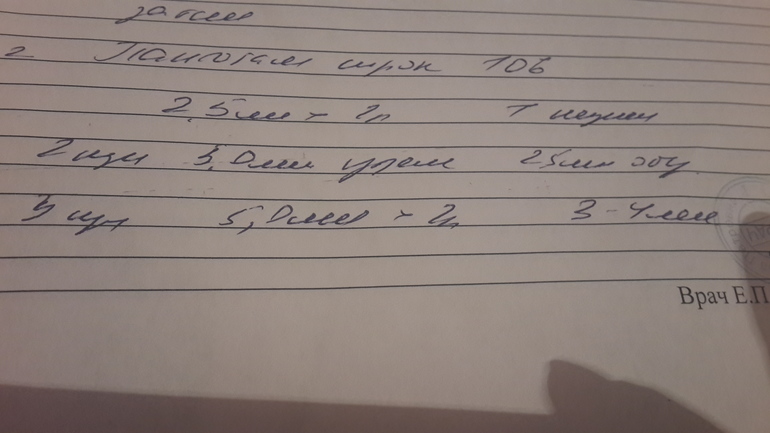 затем
2 Пантогам сироп 10%
2,5мл × 2р 1 неделя
2 нед 5,0мл утром 2,5мл обед
3 нед 5,0мл × 2р 3-4 мес
Врач Е.П